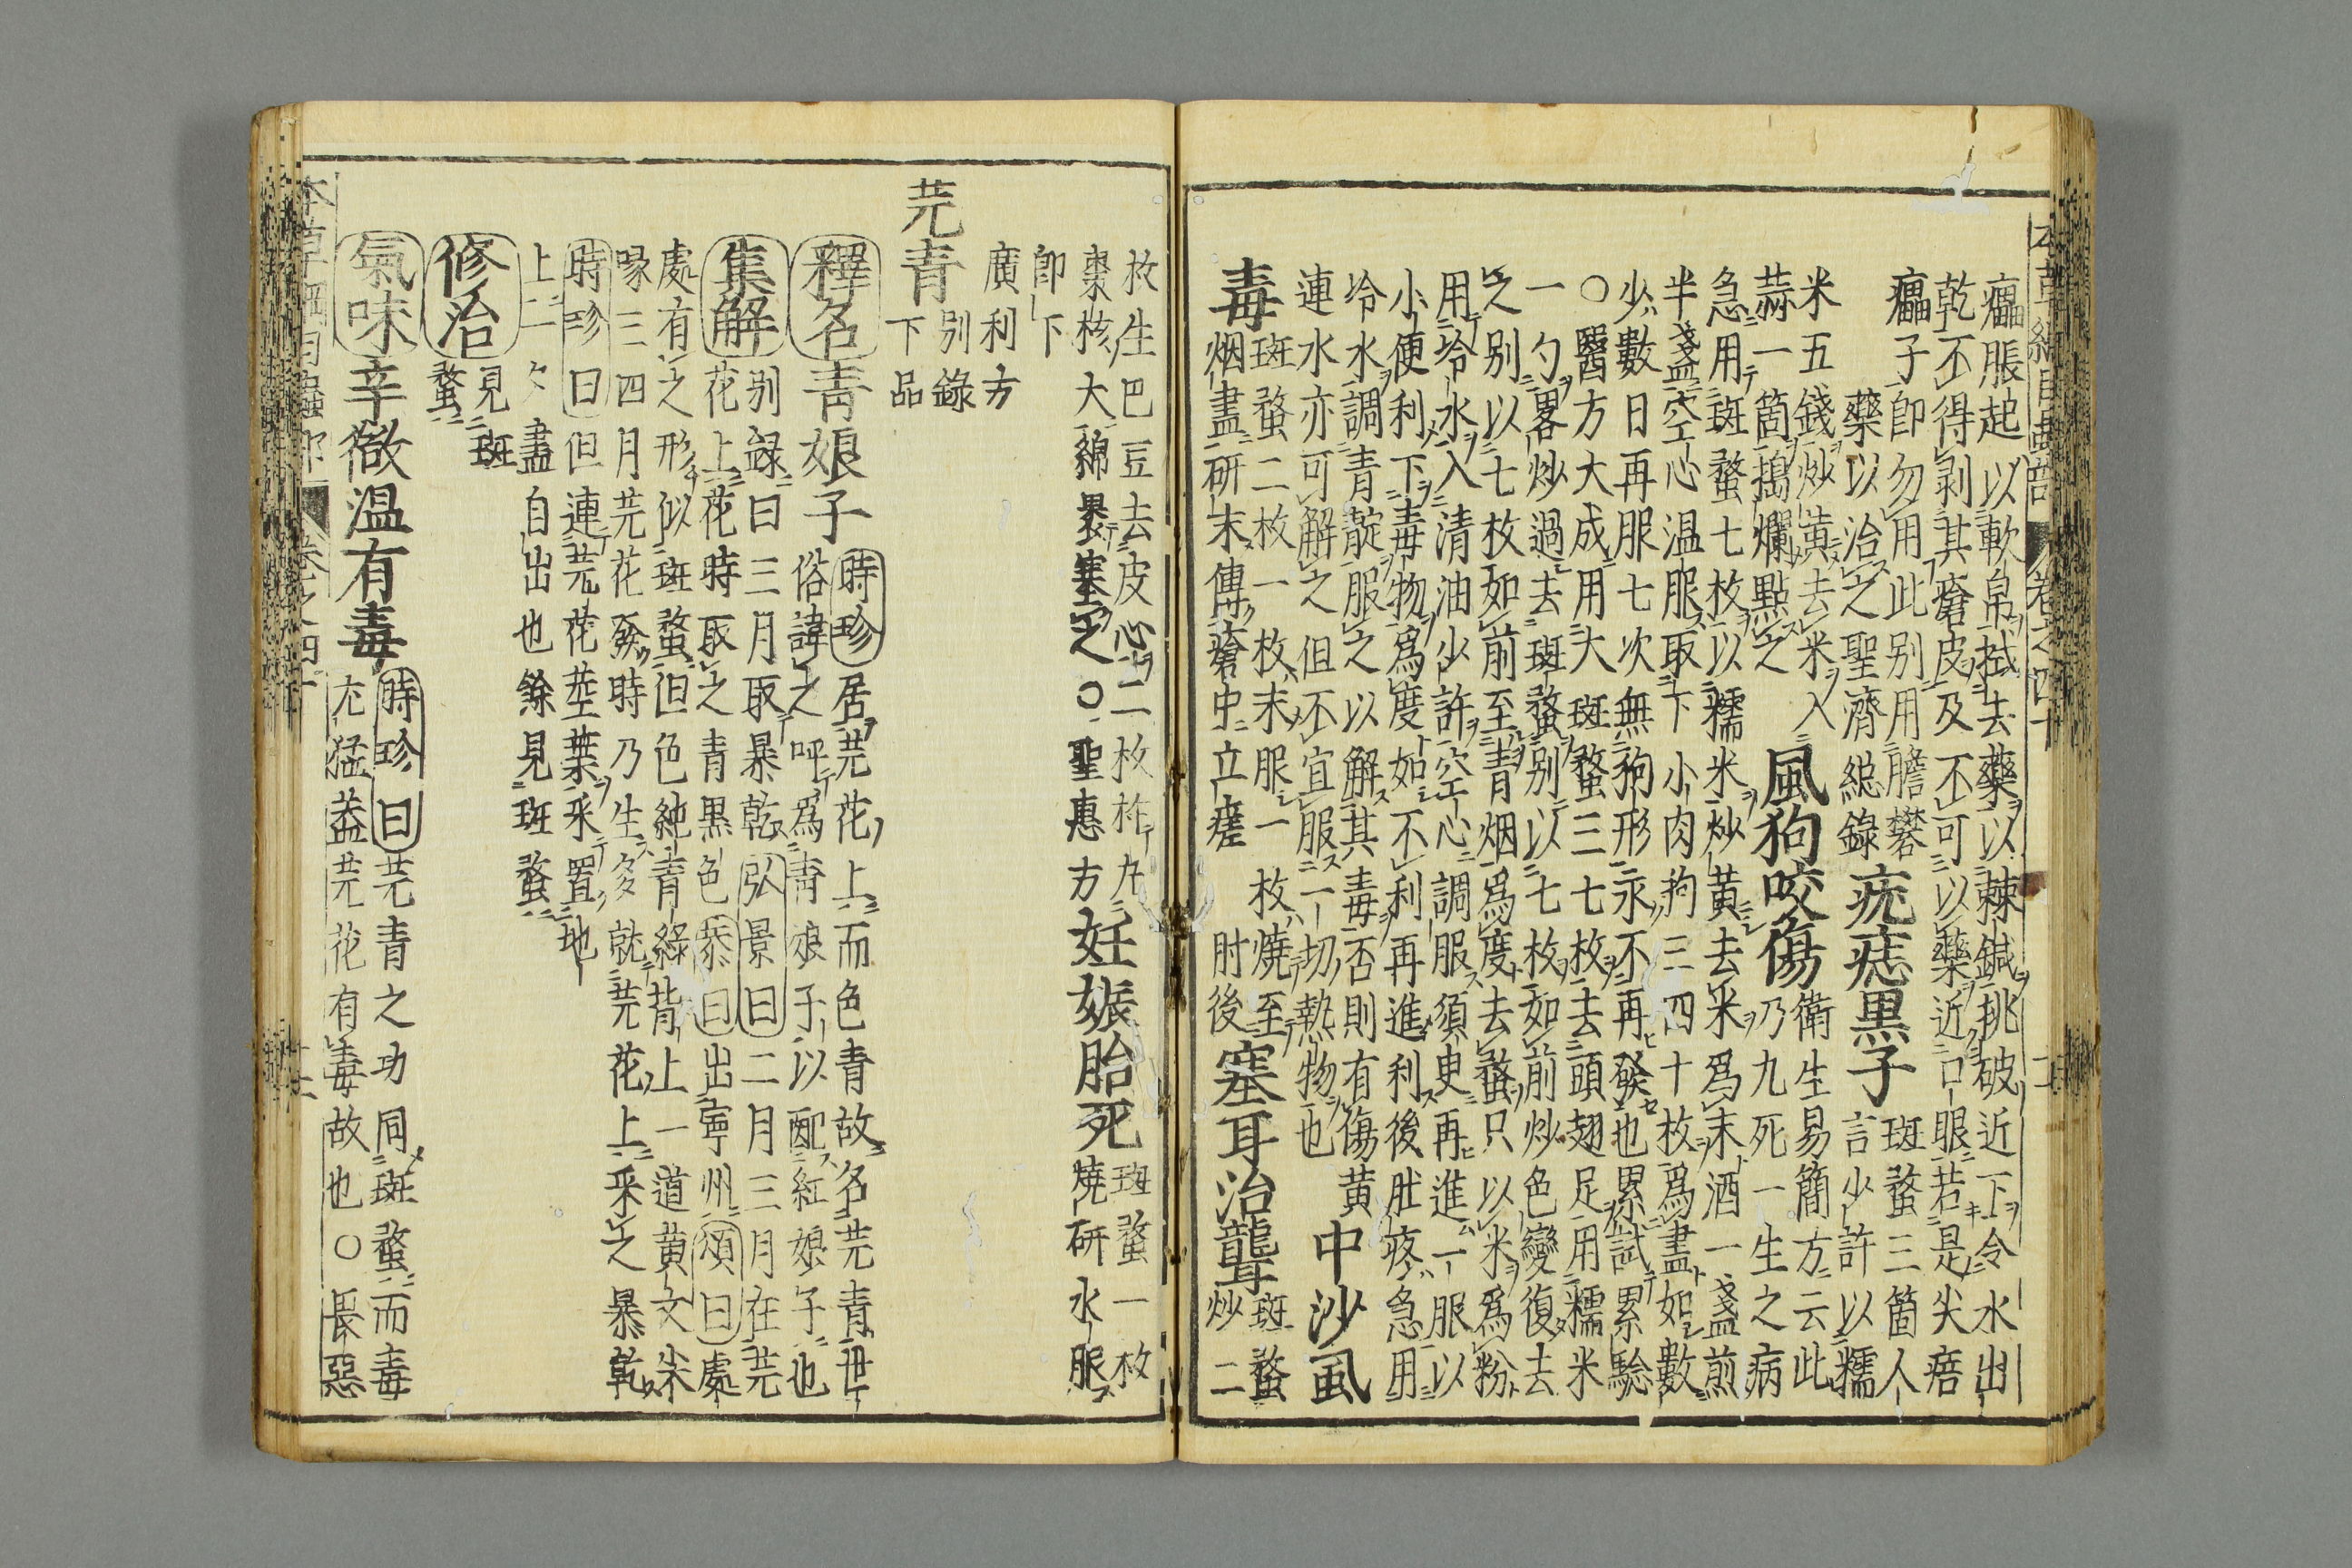 本草綱目蟲部 卷之四十
癗脹起以軟帛拭去藥以棘鍼挑破近下令水出
乾不得剥其瘡皮及不可以藥近口眼若是尖痦
癗子即勿用此别用膽礬
藥以治之聖濟総錄
疣痣黒子
斑蝥三箇人
言少許以糯
米五錢炒黃去米入
蒜一箇搗爛點之
風狗咬傷
衛生易簡方云此
乃九死一生之病
急用斑蝥七枚以糯米炒黃去米爲末酒一盞煎
半盞空心温服取下小肉狗三四十枚爲盡如數
少數日再服七次無狗形永不再發也累試累驗
○醫方大成用大斑蝥三七枚去頭翅足用糯米
一勺畧炒過去斑蝥别以七枚如前炒色變復去
之别以七枚如前至青烟爲度去蝥只以米爲粉
用冷水入清油少許空心調服須臾再進一服以
小便利下毒物爲度如不利再進利後肚疼急用
冷水調青靛服之以解其毒否則有傷黃
連水亦可解之但不宜服一切熱物也
中沙虱
毒
斑蝥二枚一枚末服一枚燒至
烟盡研末傅瘡中立瘥肘後
塞耳治聾
斑蝥
炒二
枚生巴豆去皮心二枚杵丸
棗核大綿裹塞之○聖惠方
妊娠胎死
斑蝥一枚
燒研水服
即下
廣利方
芫青
别錄
下品
釋名青娘子
時珍居芫花上而色青故名芫青世
俗諱之呼爲青娘子以配紅娘子也
集解
别録曰三月取暴乾弘景曰二月三月在芫
花上花時取之青黒色恭曰出寧州頌曰處
處有之形似斑蝥但色純青綠背上一道黃文尖
喙三四月芫花發時乃生多就芫花上采之暴乾
時珍曰但連芫花莖葉采置地
上一夕盡自出也餘見斑蝥
修治
見斑
蝥
氣味辛微温有毒
時珍曰芫青之功同斑蝥而毒
尤猛葢芫花有毒故也○長惡
本草綱目蟲部 卷之四十